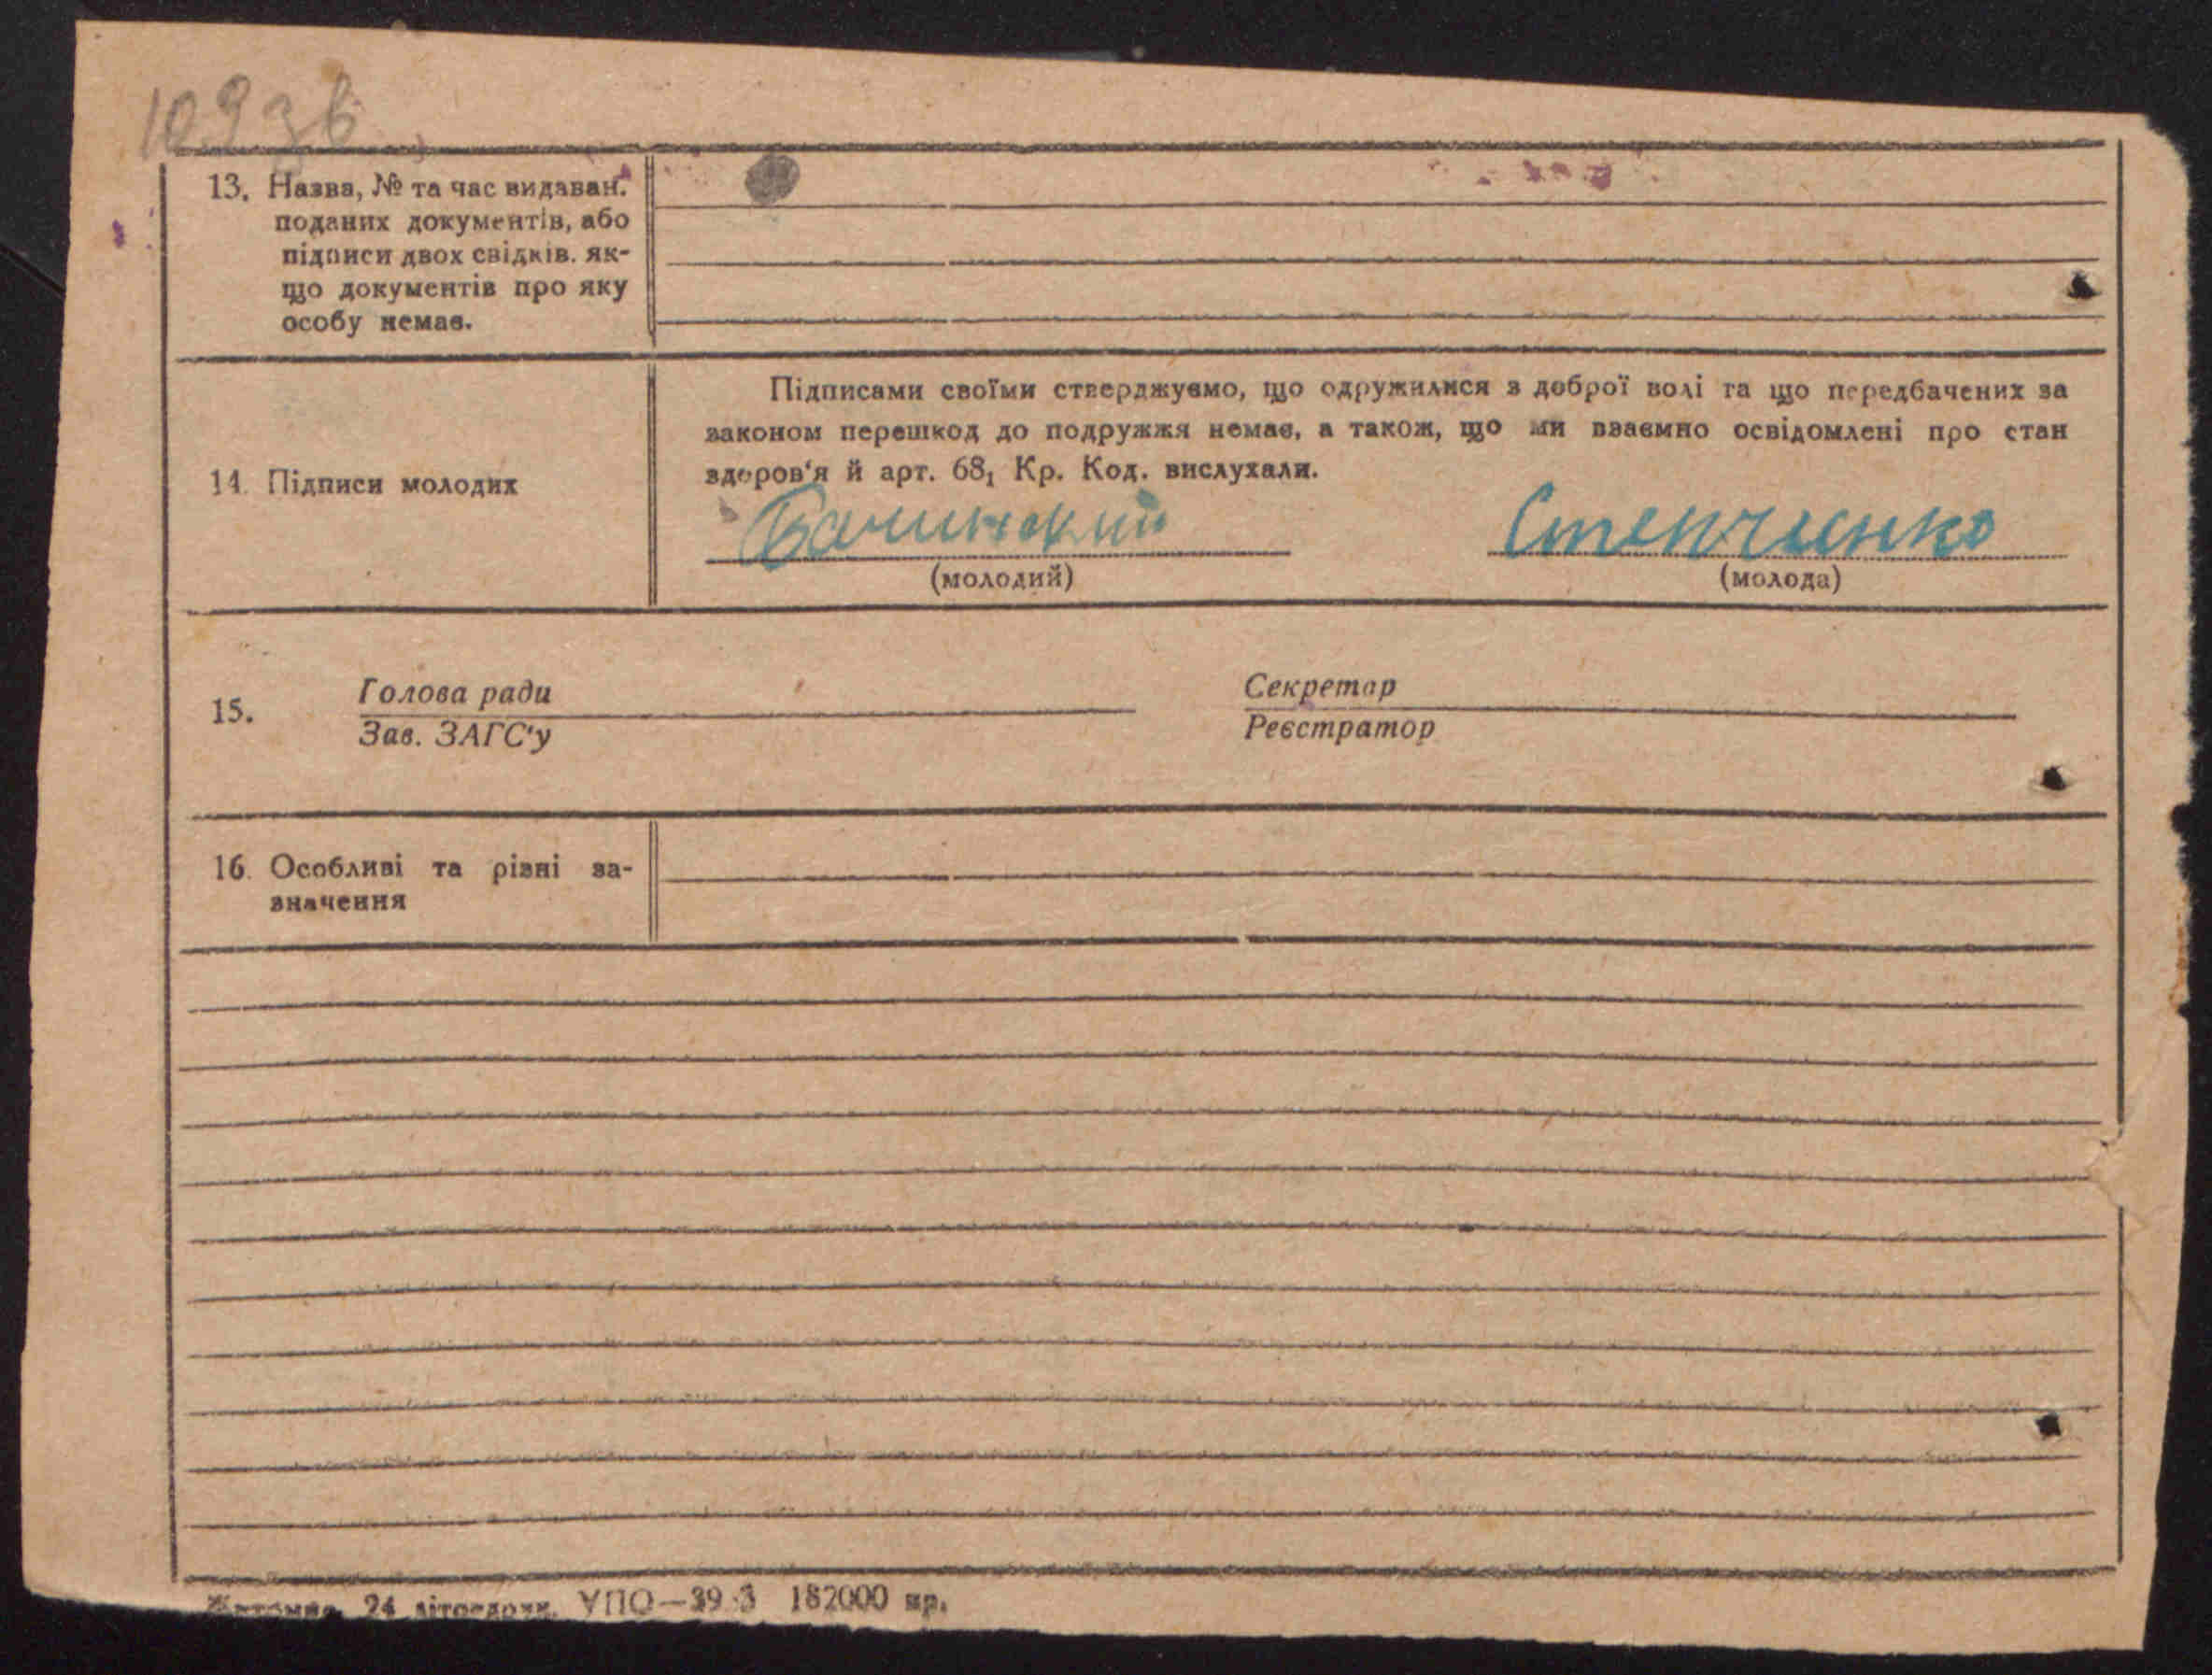 10936
13. Назва, № та час видаван.
поданих документів, або
підписи двох свідків. як-
що документів про яку
особу немає.
Підписами своїми стверджуємо, що одружилися з доброї волі та що передбачених за
законом перешкод до подружжя немає, а також, що ми взаємно освідомлені про стан
здоров'я й арт. 68₁ Кр. Код. вислухали.
14. Підписи молодих
Бачинский Стенчинко
(молодий) (молода)
15. Голова ради Секретар
Зав. ЗАГС'у Реєстратор
16. Особливі та різні за-
значення
Житомир, 24 літодрук. УПО—39 3 182000 пр.